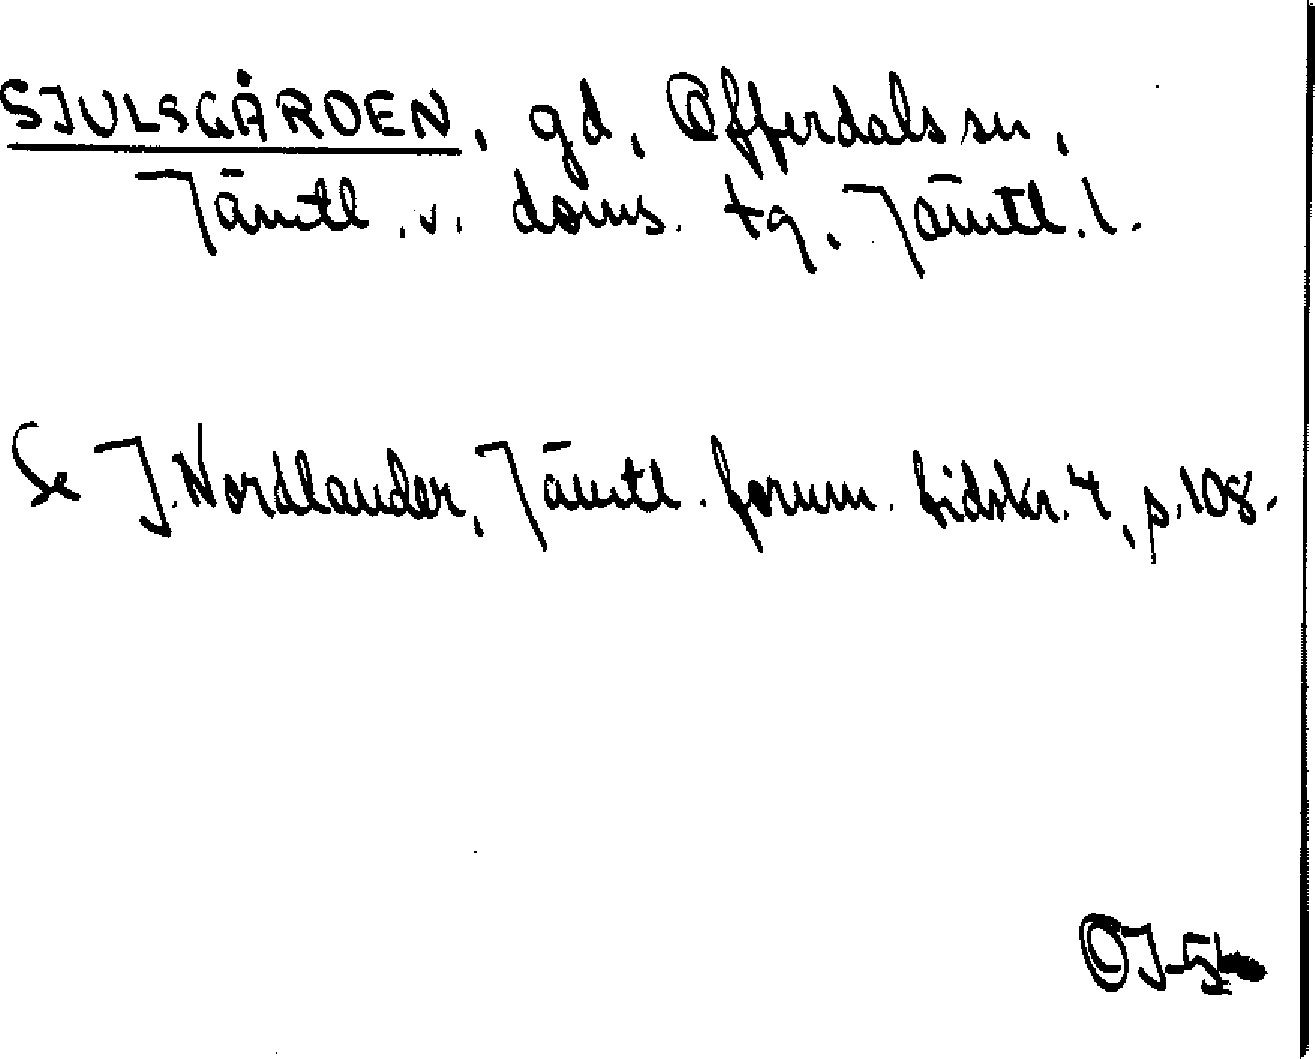 SJULSGÅRDEN, gd, Offerdals sn,
Jämtl. v. doms. tg, Jämtl. l.
Se J. Nordlander, Jämtl. fornm. tidskr. 4, s. 108.